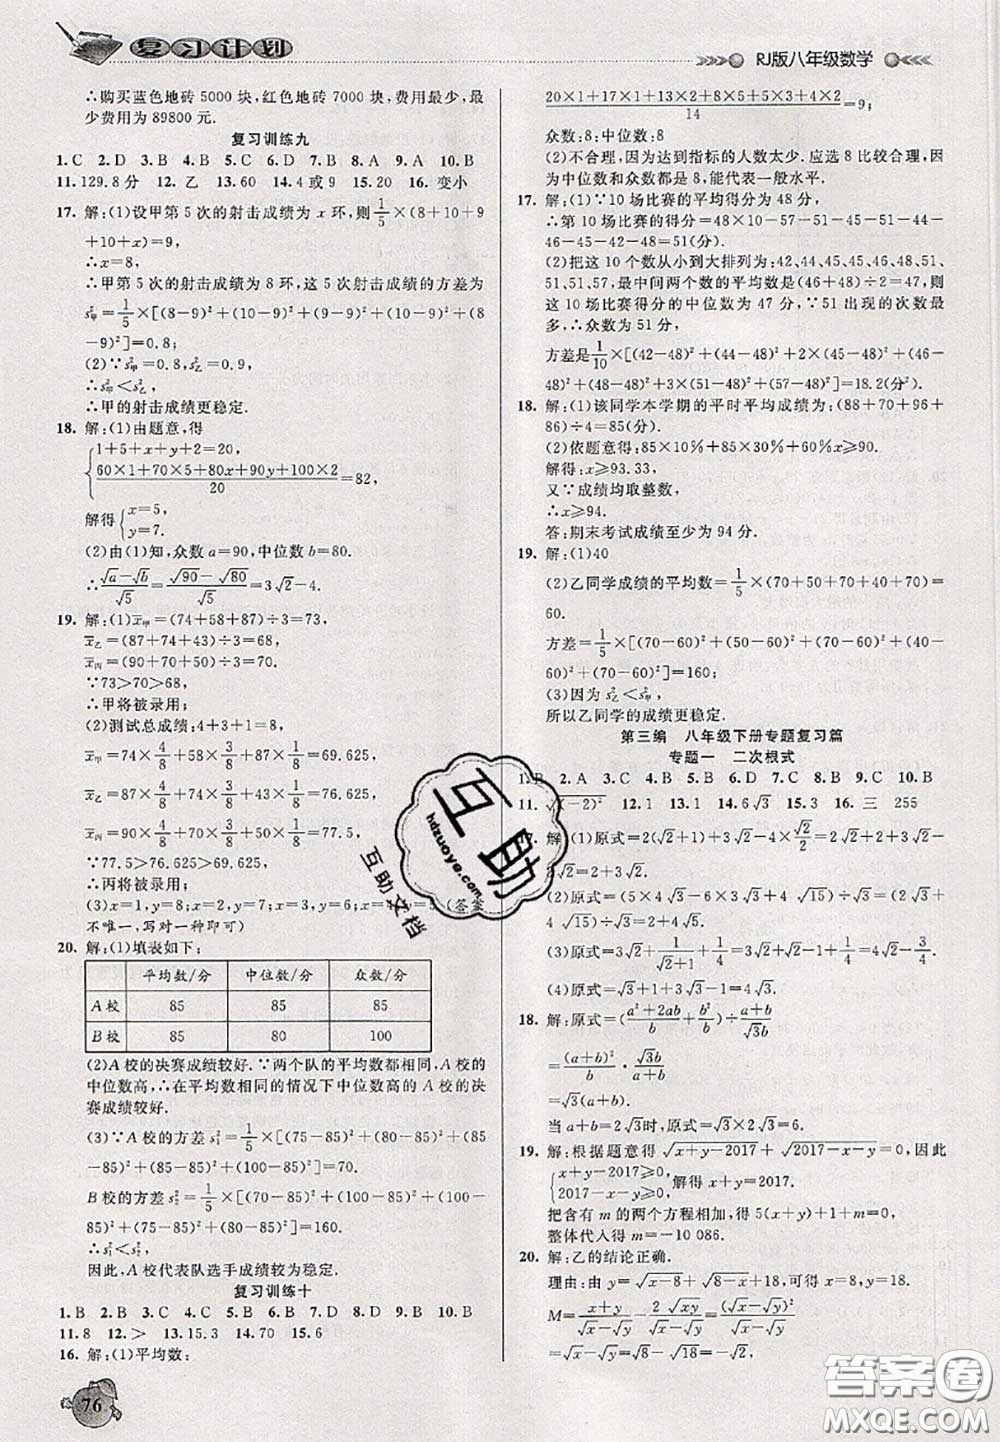 复习计划
RJ版八年级数学
∴购买蓝色地砖 5000 块,红色地砖 7000 块,费用最少,最
少费用为 89800 元.
复习训练九
1. C 2. D 3. B 4. B 5. C 6. D 7. B 8. A 9. A 10. B
11. 129.8 分 12. 乙 13. 60 14. 4 或 9 15. 20 16. 变小
17. 解:(1)设甲第 5 次的射击成绩为 x 环,则 1/5×(8+10+9
+10+x)=9,
∴x=8,
∴甲第 5 次的射击成绩为 8 环,这 5 次射击成绩的方差为
s²甲=1/5×[(8-9)²+(10-9)²+(9-9)²+(10-9)²+(8
-9)²]=0.8;
(2)∵s²甲=0.8,s²乙=2,
∴s²甲<s²乙.
∴甲的射击成绩更稳定.
18. 解:(1)由题意,得
{1+5+x+y+2=20,
(60×1+70×5+80x+90y+100×2)/20=82,
解得{x=5,
y=7.
(2)由(1)知,众数 a=90,中位数 b=80.
∴(√a-√b)/√5=(√90-√80)/√5=3√2-4.
19. 解:(1)x̄甲=(74+58+87)÷3=73,
x̄乙=(87+74+43)÷3=68,
x̄丙=(90+70+50)÷3=70.
∵73>70>68,
∴甲将被录用;
(2)测试总成绩:4+3+1=8,
x̄甲=74×4/8+58×3/8+87×1/8=69.625,
x̄乙=87×4/8+74×3/8+43×1/8=76.625,
x̄丙=90×4/8+70×3/8+50×1/8=77.5,
∵77.5>76.625>69.625,
∴丙将被录用;
(3)x=1,y=8;x=2,y=7;x=3,y=6;x=4,y=5.(答案
不唯一,写对一种即可)
20. 解:(1)填表如下:
平均数/分 中位数/分 众数/分
A 校 85 85 85
B 校 85 80 100
(2)A 校的决赛成绩较好.∵两个队的平均数都相同,A 校的
中位数高;∴在平均数相同的情况下中位数高的 A 校的决
赛成绩较好.
(3)∵A 校的方差 s²₁=1/5×[(75-85)²+(80-85)²+(85
-85)²+(85-85)²+(100-85)²]=70,
B 校的方差 s²₂=1/5×[(70-85)²+(100-85)²+(100-
85)²+(75-85)²+(80-85)²]=160.
∴s²₁<s²₂.
因此,A 校代表队选手成绩较为稳定.
复习训练十
1. B 2. B 3. A 4. B 5. C 6. B 7. B 8. D 9. C 10. B
11. 8 12. > 13. 15.3 14. 70 15. 6
16. 解:(1)平均数:
(20×1+17×1+13×2+8×5+5×3+4×2)/14=9;
众数:8;中位数:8
(2)不合理,因为达到指标的人数太少.应选 8 比较合理,因
为中位数和众数为 8,能代表一般水平.
17. 解:(1)∵10 场比赛的平均得分为 48 分,
∴第 10 场比赛的得分=48×10-57-51-45-51-44-
46-45-42-48=51(分).
(2)把这 10 个数从小到大排列为:42,44,45,45,46,48,51,
51,51,57,最中间两个数的平均数是(46+48)÷2=47,则
这 10 场比赛得分的中位数为 47 分,∵51 出现的次数最
多,∴众数为 51 分,
方差是1/10×[(42-48)²+(44-48)²+2×(45-48)²+(46-
48)²+(48-48)²+3×(51-48)²+(57-48)²]=18.2(分²).
18. 解:(1)该同学本学期的平时平均成绩为:(88+70+96+
86)÷4=85(分).
(2)依题意得:85×10%+85×30%+60%x≥90,
解得:x≥93.33,
又∵成绩均取整数,
∴x≥94.
答:期末考试成绩至少为 94 分.
19. 解:(1)40
(2)乙同学成绩的平均数=1/5×(70+50+70+40+70)=
60.
方差=1/5×[(70-60)²+(50-60)²+(70-60)²+(40-
60)²+(70-60)²]=160;
(3)因为 s²乙<s²甲,
所以乙同学的成绩更稳定.
第三编 八年级下册专题复习篇
专题一 二次根式
1. B 2. A 3. C 4. C 5. B 6. D 7. C 8. B 9. C 10. B
11. √(-2)² 12. 1 13. 1 14. 6√3 15. 3 16. 三 255
17. 解:(1)原式=2(√2+1)+3√2-4×√2/2=2√2+2+3√2-
2√2=2+3√2.
(2)原式=(5×4√3-6×3√3+4√15)÷√3=(2√3+
4√15)÷√3=2+4√5.
(3)原式=1/(√2+1)+√2+1=√2-1+√2+1=2√2.
(4)原式=√3+1-√3+1=2.
18. 解:原式=((a²+2ab)/b+b²/b)÷(a+b)/(√3b)
=(a+b)²/b·√3b/(a+b)
=√3(a+b).
当 a+b=2√3时,原式=√3×2√3=6.
19. 解:根据题意得√(x+y-2017)+√(2017-x-y)=0,因此
{x+y-2017≥0,
2017-x-y≥0,解得 x+y=2017.
把含有 m 的两个方程相加,得 5(x+y)+1+m=0,
整体代入得 m=-10 086.
20. 解:乙的结论正确.
理由:由 y=√(x-8)+√(8-x)+18,可得 x=8,y=18.
M=(x+y)/(√x-√y)-2√xy/(√x-√y)=(√x-√y)²/(√x-√y)
76
互助
hdzuoye.com
互助文档
答案圈
MXQE.COM